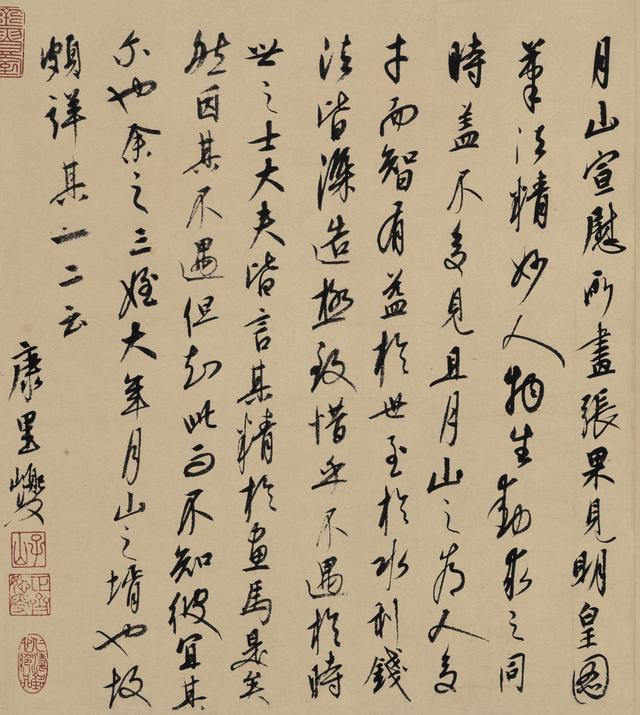 月山宣慰所畫張果見明皇圖
筆法精妙人物生動求之同
時蓋不多見且月山之為人多
才而智有益於世至於水利錢
法皆深造極致惜乎不遇於時
世之士大夫皆言其精於畫馬是矣
然因其不遇但知此而不知彼宜其
尒也余之三姪大年月山之壻也故
頗詳其一二云
康里巙
子山